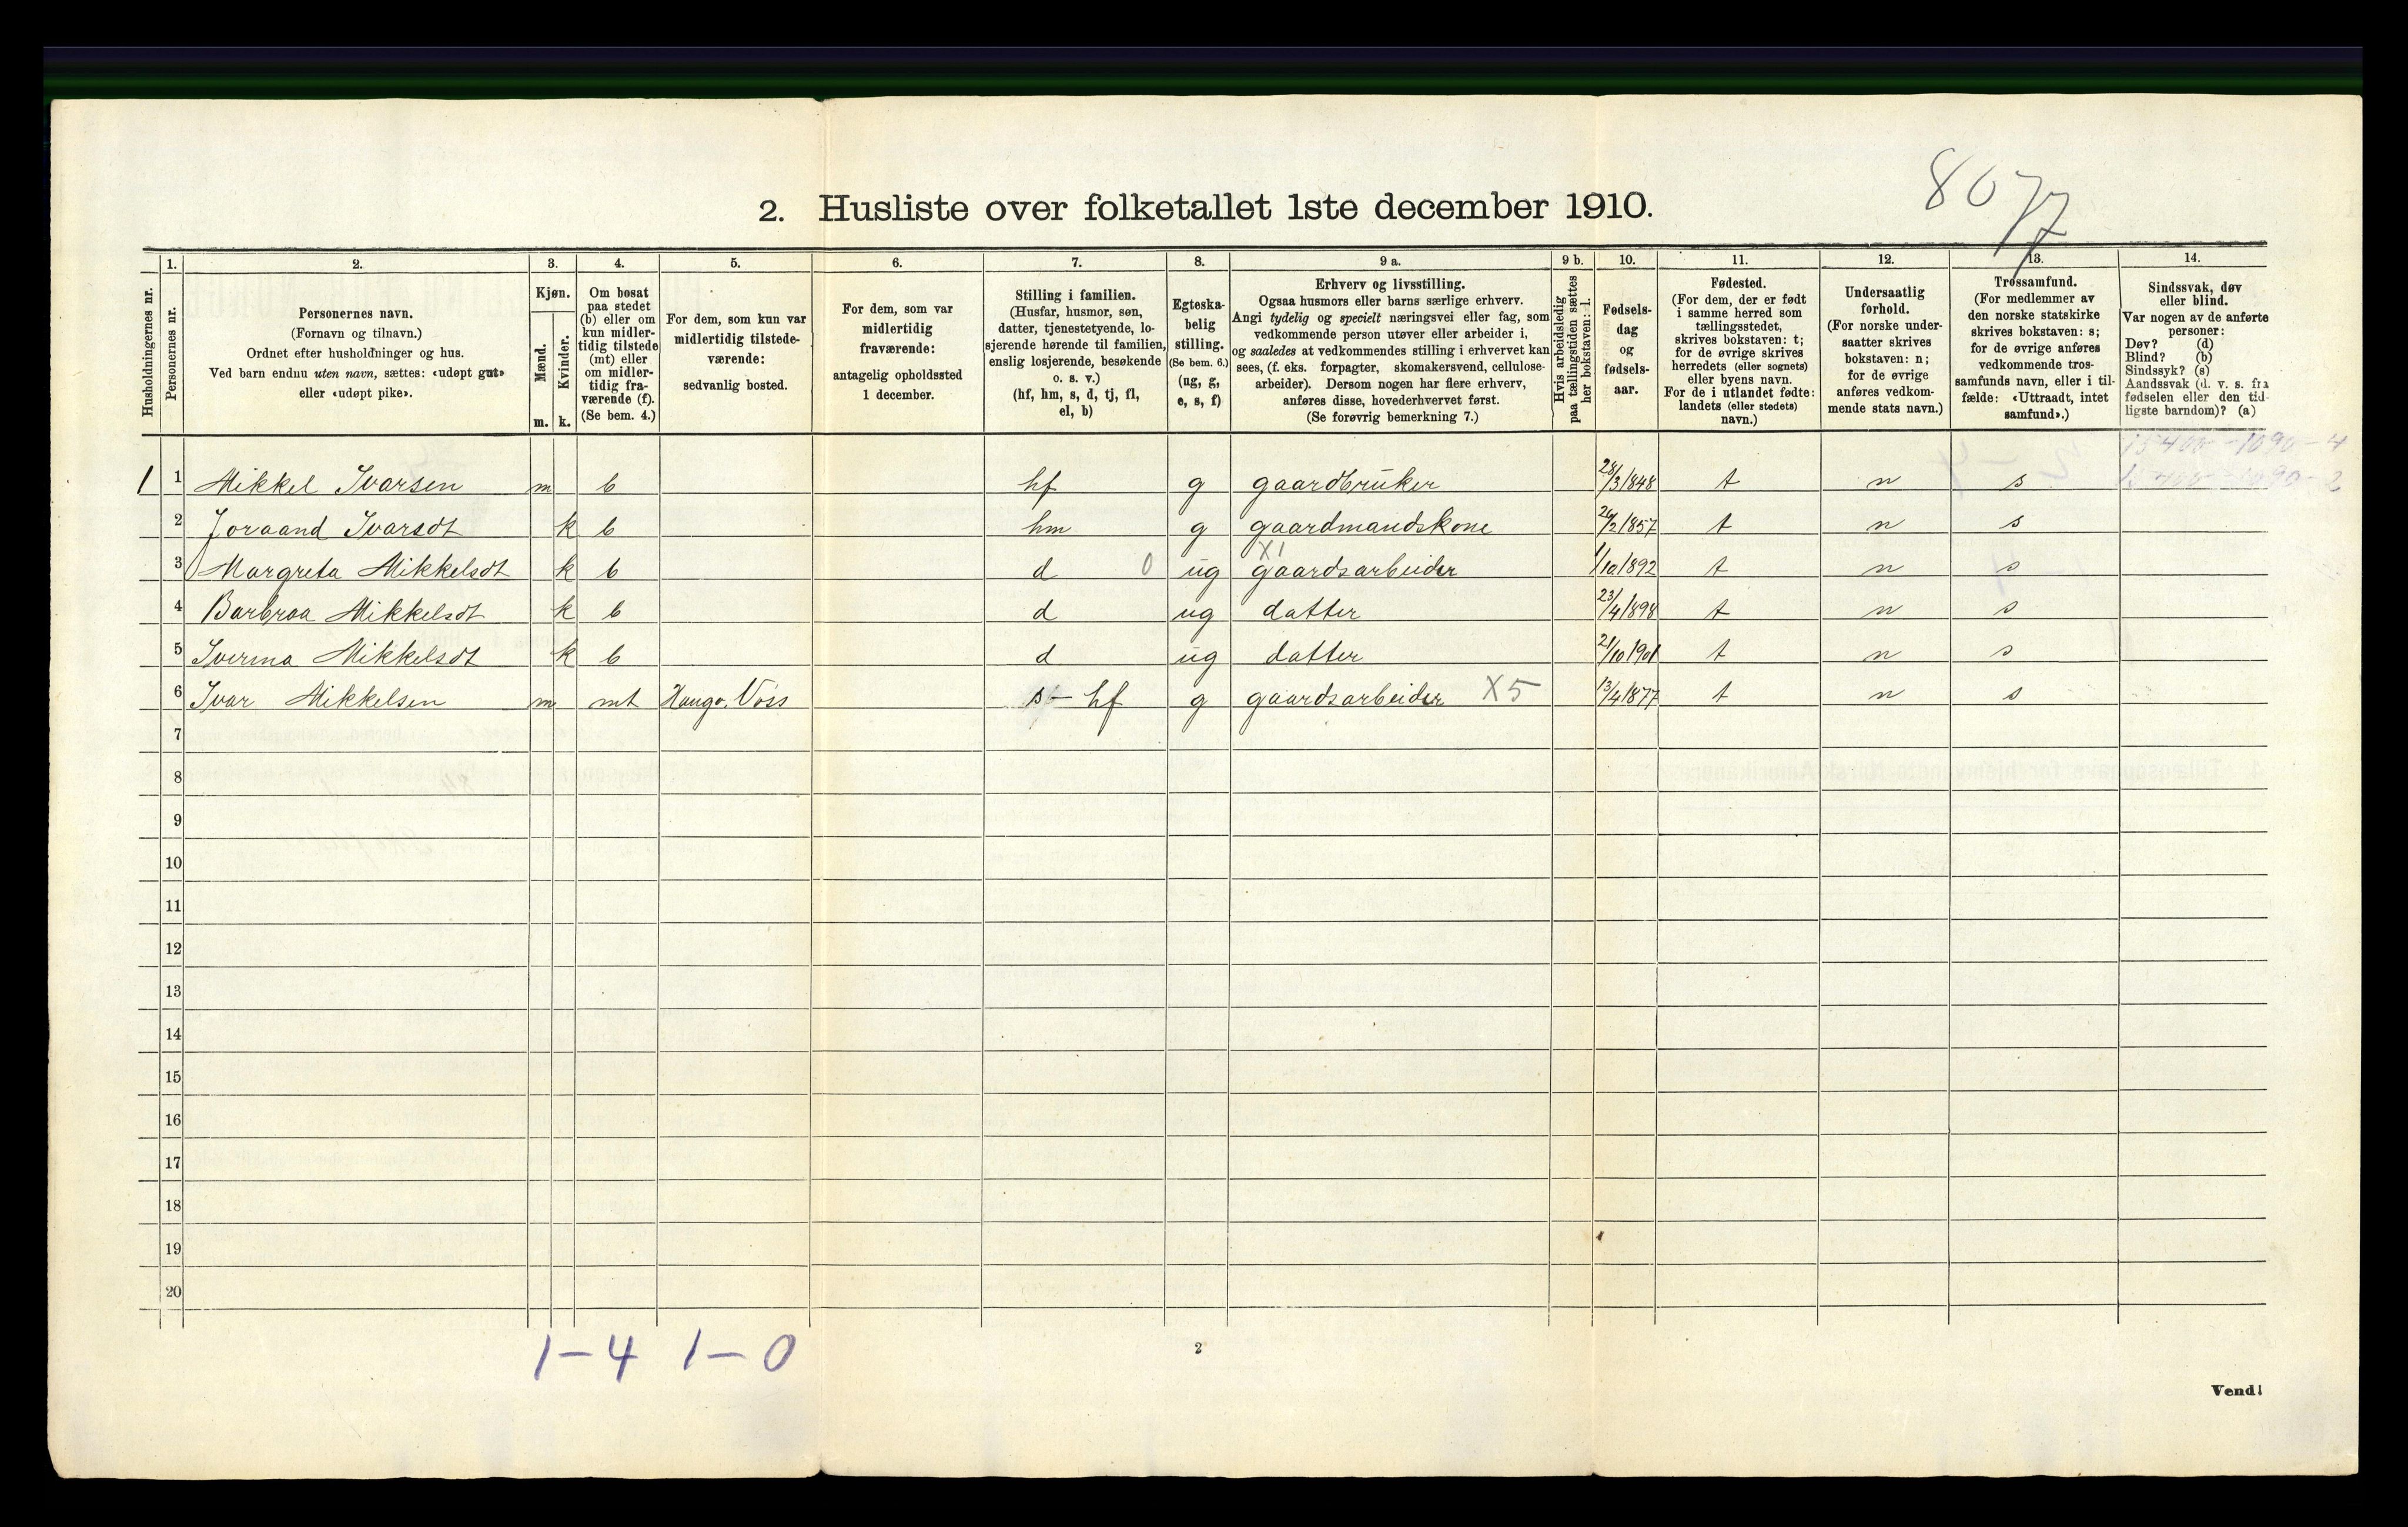 8077
2. Husliste over folketallet 1ste december 1910.
Husholdningernes nr.
1.
Personernes nr.
2.
Personernes navn.
(Fornavn og tilnavn.)
Ordnet efter husholdninger og hus.
Ved barn endnu uten navn, sættes: «udøpt gut»
eller «udøpt pike».
3.
Kjøn.
Mænd.
Kvinder.
m. k.
4.
Om bosat
paa stedet
(b) eller om
kun midler-
tidig tilstede
(mt) eller
om midler-
tidig fra-
værende (f).
(Se bem. 4.)
5.
For dem, som kun var
midlertidig tilstede-
værende:
sedvanlig bosted.
6.
For dem, som var
midlertidig
fraværende:
antagelig opholdssted
1 december.
7.
Stilling i familien.
(Husfar, husmor, søn,
datter, tjenestetyende, lo-
sjerende hørende til familien,
enslig losjerende, besøkende
o. s. v.)
(hf, hm, s, d, tj, fl,
el, b)
8.
Egteska-
belig
stilling.
(Se bem. 6.)
(ug, g,
e, s, f)
9 a.
Erhverv og livsstilling.
Ogsaa husmors eller barns særlige erhverv.
Angi tydelig og specielt næringsvei eller fag, som
vedkommende person utøver eller arbeider i,
og saaledes at vedkommendes stilling i erhvervet kan
sees, (f. eks. forpagter, skomakersvend, cellulose-
arbeider). Dersom nogen har flere erhverv,
anføres disse, hovederhvervet først.
(Se forøvrig bemerkning 7.)
9 b.
Hvis arbeidsledig
paa tællingstiden sættes
her bokstaven: l.
10.
Fødsels-
dag
og
fødsels-
aar.
11.
Fødested.
(For dem, der er født
i samme herred som
tællingsstedet,
skrives bokstaven: t;
for de øvrige skrives
herredets (eller sognets)
eller byens navn.
For de i utlandet fødte:
landets (eller stedets)
navn.)
12.
Undersaatlig
forhold.
(For norske under-
saatter skrives
bokstaven: n;
for de øvrige
anføres vedkom-
mende stats navn.)
13.
Trossamfund.
(For medlemmer av
den norske statskirke
skrives bokstaven: s;
for de øvrige anføres
vedkommende tros-
samfunds navn, eller i til-
fælde: «Uttraadt, intet
samfund».)
14.
Sindssvak, døv
eller blind.
Var nogen av de anførte
personer:
Døv? (d)
Blind? (b)
Sindssyk? (s)
Aandssvak (d. v. s. fra
fødselen eller den tid-
ligste barndom)? (a)
1 1 Mikkel Ivarsen m b hf g gaardbruker 28/3 1848 t n s
2 Joraand Ivarsdt k b hm g gaardmandskone 26/2 1857 t n s
3 Margreta Mikkelsdt k b d 0 ug X1 gaardsarbeider 1/10 1892 t n s
4 Barbraa Mikkelsdt k b d ug datter 23/4 1898 t n s
5 Iverina Mikkelsdt k b d ug datter 21/10 1901 t n s
6 Ivar Mikkelsen m mt Haugo. Voss s - hf g gaardsarbeider X5 13/4 1877 t n s
7
8
9
10
11
12
13
14
15
16
17
18
19
20
1-4 1-0
2
Vend!